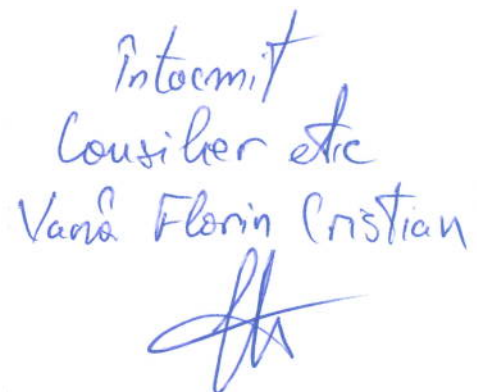 Întocmit
Consilier etic
Vană Florin Cristian